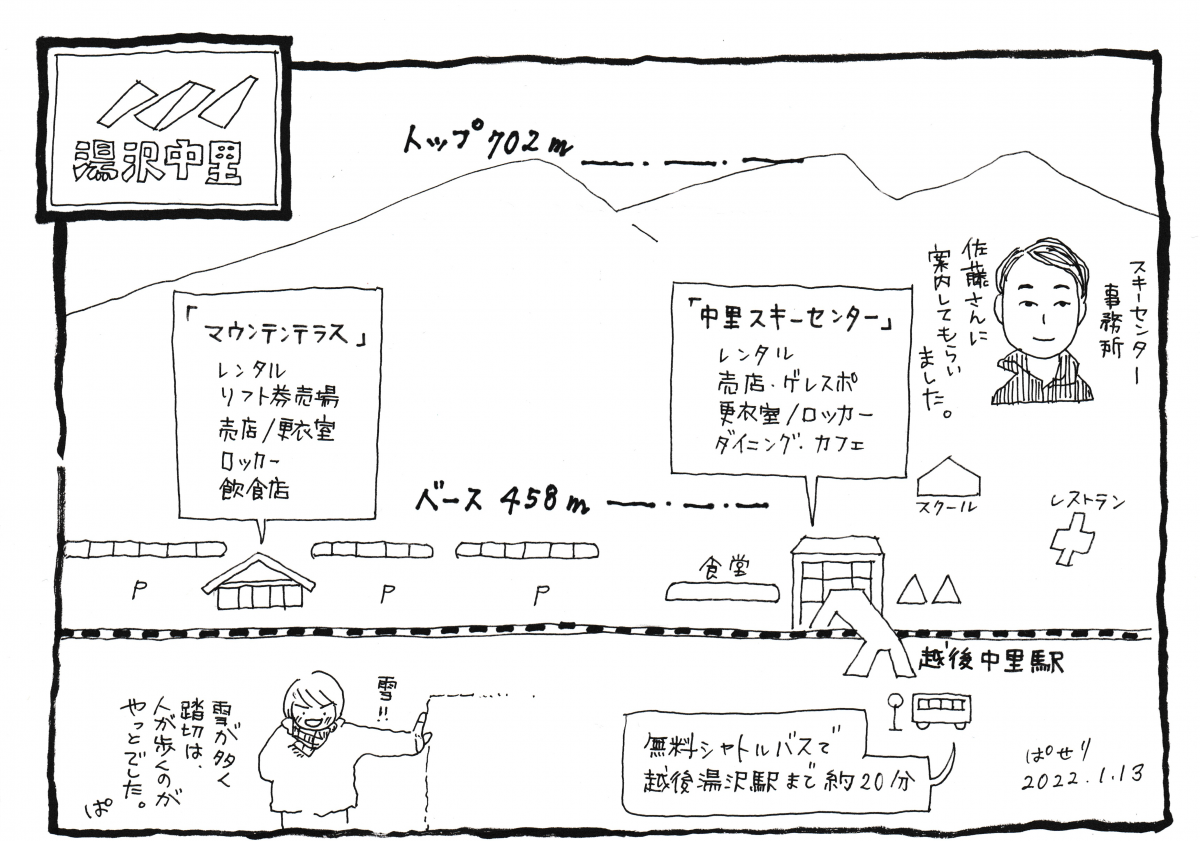 湯沢中里
トップ 702m
スキーセンター
事務所
佐藤さんに
案内してもらい
ました。
「マウンテンテラス」
レンタル
リフト券売場
売店/更衣室
ロッカー
飲食店
「中里スキーセンター」
レンタル
売店・ゲレスポ
更衣室/ロッカー
ダイニング・カフェ
ベース 458m
スクール
レストラン
P
P
P
食堂
越後中里駅
雪!!
雪が多く
踏切は、
人が歩くのが
やっとでした。
ぱ
無料シャトルバスで
越後湯沢駅まで約20分
ぱせり
2022.1.13